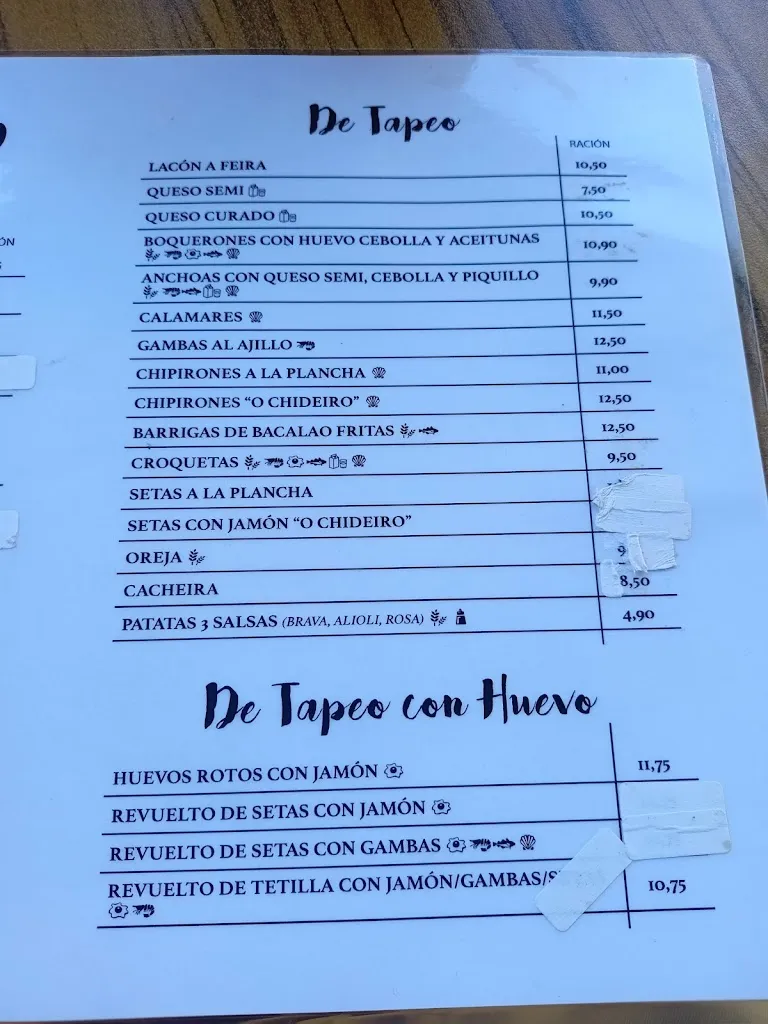 De Tapeo
RACIÓN
LACÓN A FEIRA 10,50
QUESO SEMI 7,50
QUESO CURADO 10,50
BOQUERONES CON HUEVO CEBOLLA Y ACEITUNAS 10,90
ANCHOAS CON QUESO SEMI, CEBOLLA Y PIQUILLO 9,90
CALAMARES 11,50
GAMBAS AL AJILLO 12,50
CHIPIRONES A LA PLANCHA 11,00
CHIPIRONES “O CHIDEIRO” 12,50
BARRIGAS DE BACALAO FRITAS 12,50
CROQUETAS 9,50
SETAS A LA PLANCHA
SETAS CON JAMÓN “O CHIDEIRO”
OREJA
CACHEIRA 8,50
PATATAS 3 SALSAS (BRAVA, ALIOLI, ROSA) 4,90
De Tapeo con Huevo
HUEVOS ROTOS CON JAMÓN 11,75
REVUELTO DE SETAS CON JAMÓN
REVUELTO DE SETAS CON GAMBAS
REVUELTO DE TETILLA CON JAMÓN/GAMBAS/ 10,75